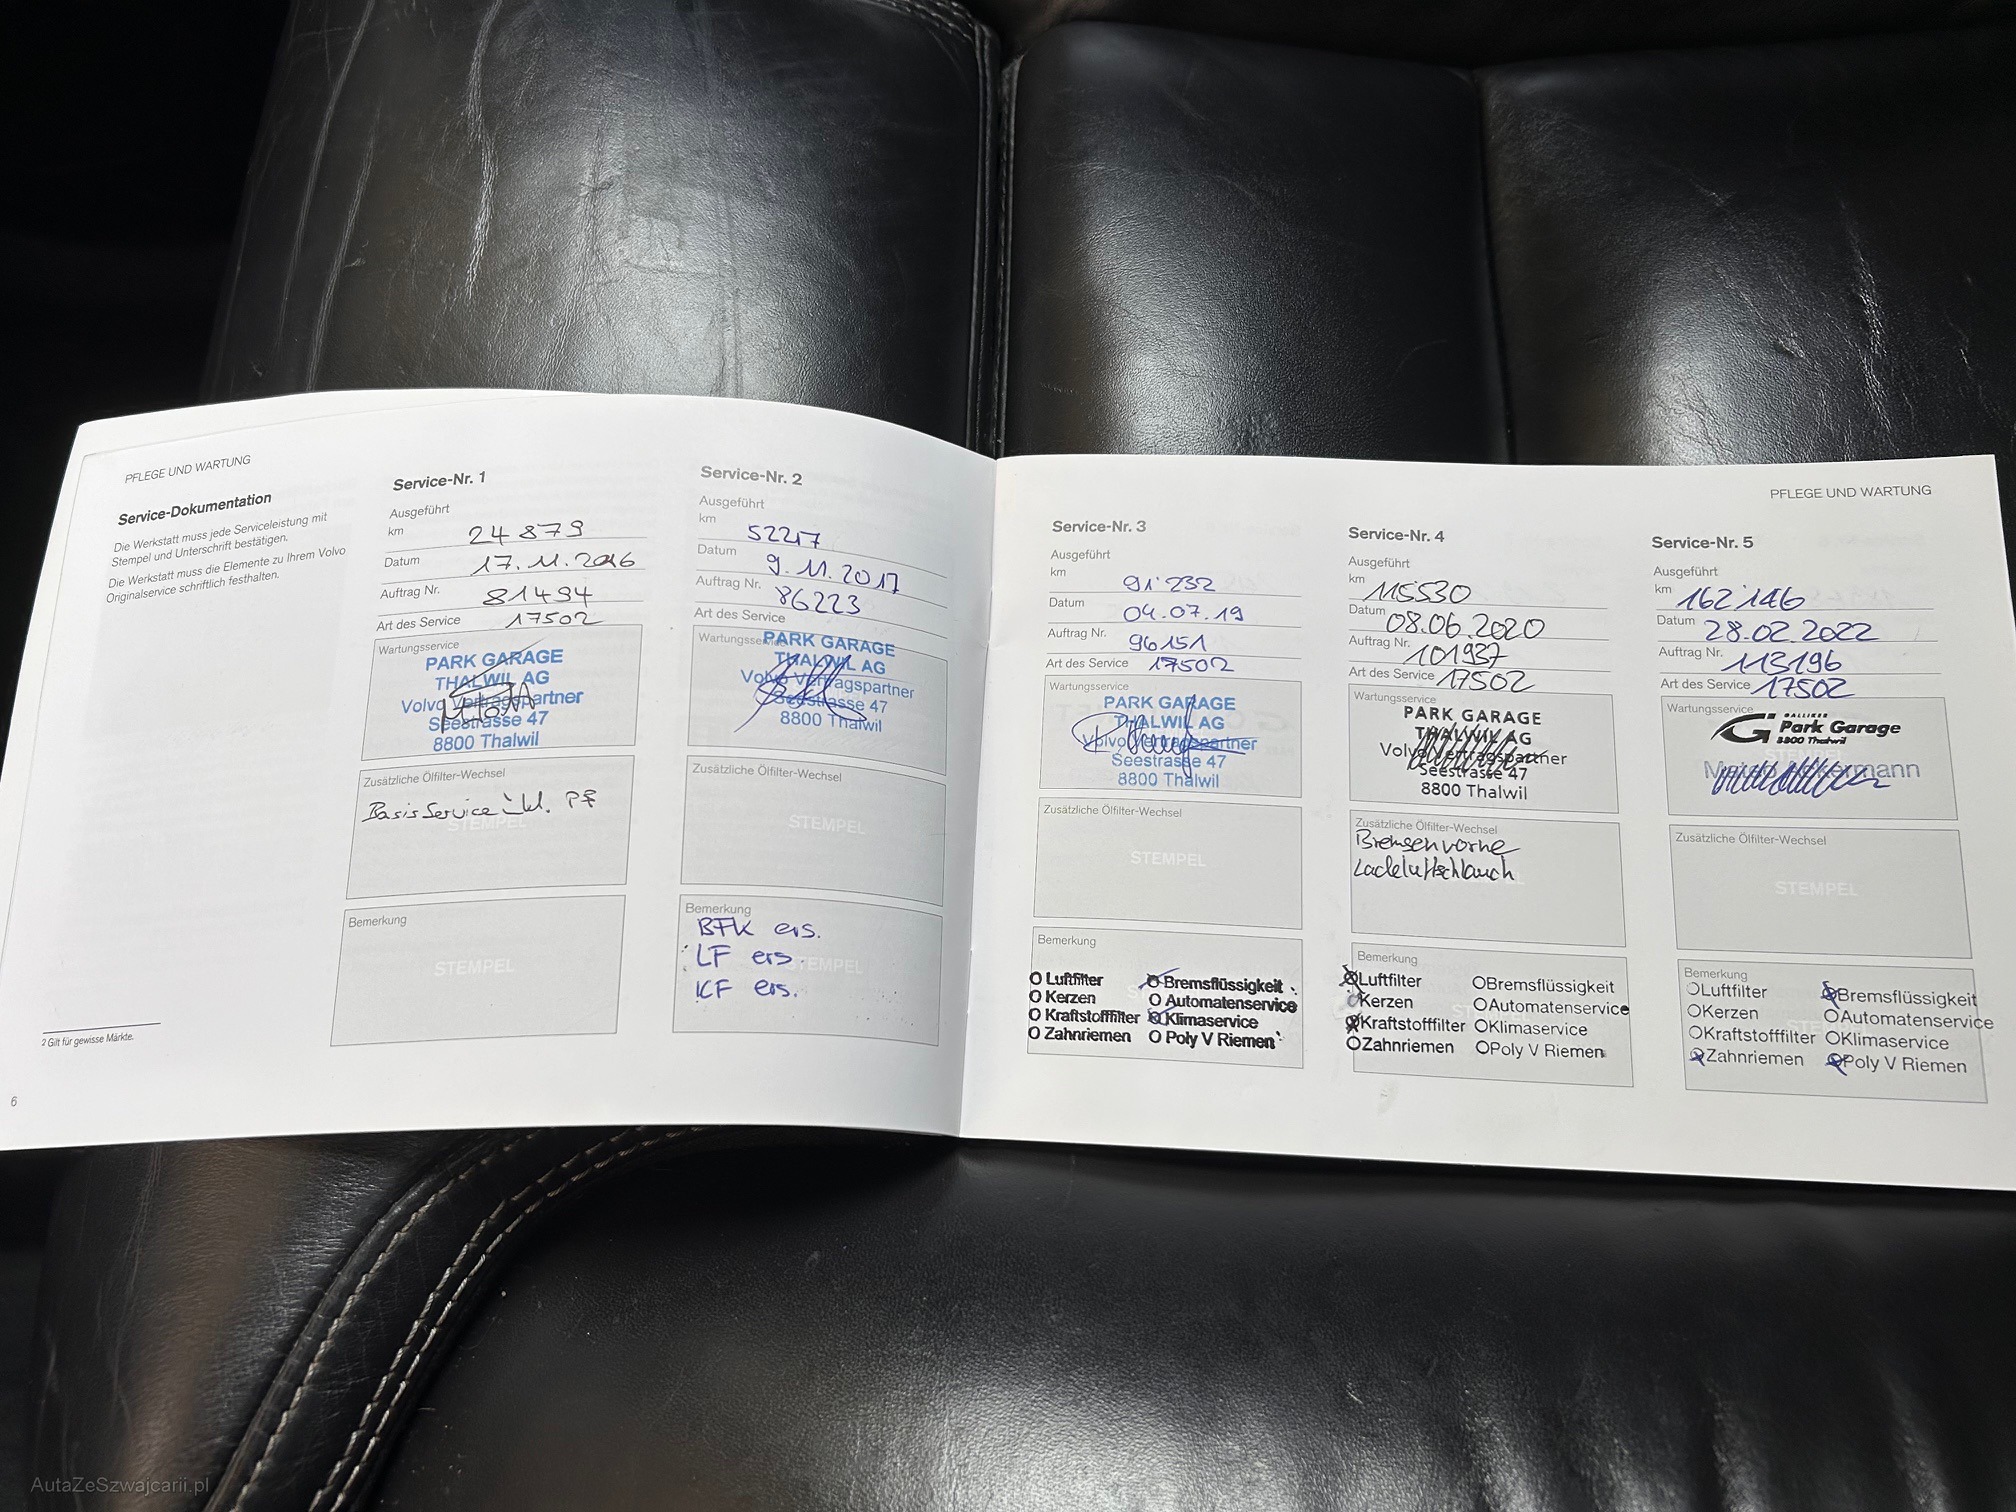 PFLEGE UND WARTUNG
Service-Dokumentation
Die Werkstatt muss jede Serviceleistung mit
Stempel und Unterschrift bestätigen.
Die Werkstatt muss die Elemente zu Ihrem Volvo
Originalservice schriftlich festhalten.
2 Gilt für gewisse Märkte.
6
Service-Nr. 1
Ausgeführt
km 24879
Datum 17.11.2016
Auftrag Nr. 81494
Art des Service 17502
Wartungsservice
PARK GARAGE
THALWIL AG
Volvo Vertragspartner
Seestrasse 47
8800 Thalwil
Zusätzliche Ölfilter-Wechsel
Basis Service inkl. PF
STEMPEL
Bemerkung
STEMPEL
Service-Nr. 2
Ausgeführt
km 52217
Datum 9.11.2017
Auftrag Nr. 86223
Art des Service
Wartungsservice
PARK GARAGE
THALWIL AG
Volvo Vertragspartner
Seestrasse 47
8800 Thalwil
Zusätzliche Ölfilter-Wechsel
STEMPEL
Bemerkung
BFK ers.
LF ers.
STEMPEL
ICF ers.
PFLEGE UND WARTUNG
Service-Nr. 3
Ausgeführt
km 91'232
Datum 04.07.19
Auftrag Nr. 96151
Art des Service 17502
Wartungsservice
PARK GARAGE
THALWIL AG
Volvo Vertragspartner
Seestrasse 47
8800 Thalwil
Zusätzliche Ölfilter-Wechsel
STEMPEL
Bemerkung
O Luftfilter O Bremsflüssigkeit
O Kerzen O Automatenservice
O Kraftstofffilter O Klimaservice
O Zahnriemen O Poly V Riemen
Service-Nr. 4
Ausgeführt
km 115530
Datum 08.06.2020
Auftrag Nr. 101937
Art des Service 17502
Wartungsservice
PARK GARAGE
THALWIL AG
Volvo Vertragspartner
Seestrasse 47
8800 Thalwil
Zusätzliche Ölfilter-Wechsel
Bremsen vorne
Ladeluftschlauch
Bemerkung
O Luftfilter O Bremsflüssigkeit
O Kerzen O Automatenservice
O Kraftstofffilter O Klimaservice
O Zahnriemen O Poly V Riemen
Service-Nr. 5
Ausgeführt
km 162'146
Datum 28.02.2022
Auftrag Nr. 113196
Art des Service 17502
Wartungsservice
GALLIKER
Park Garage
8800 Thalwil
Zusätzliche Ölfilter-Wechsel
STEMPEL
Bemerkung
O Luftfilter O Bremsflüssigkeit
O Kerzen O Automatenservice
O Kraftstofffilter O Klimaservice
O Zahnriemen O Poly V Riemen
AutaZeSzwajcarii.pl